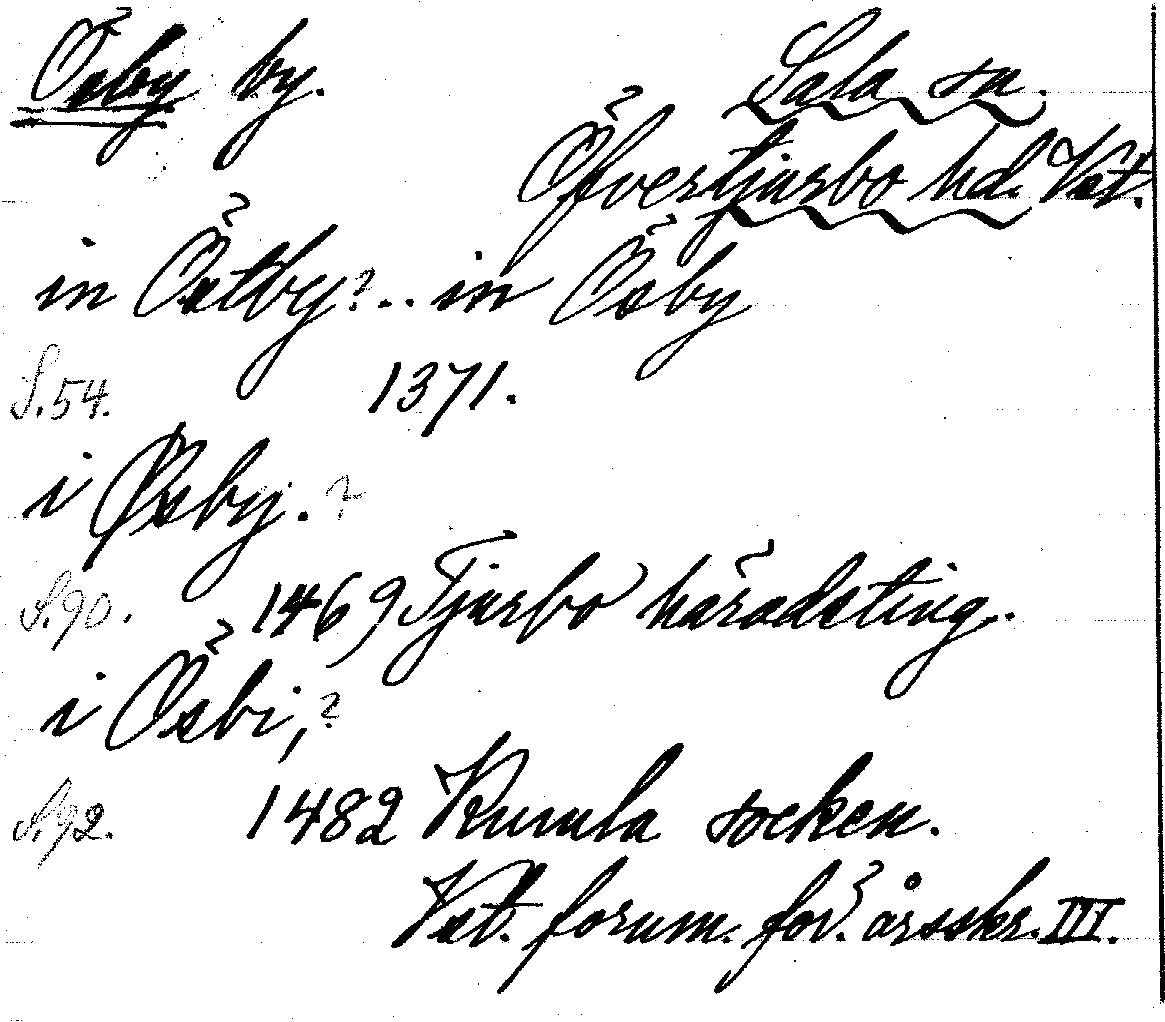 Ösby by. Sala sn.
Öfvertjurbo hd. Vst.
in Östby?.. in Ösby
S.54. 1371.
i Øsby. ?
S.90. 1469 Tjurbo häradsting.
i Ösbi, ?
S.92. 1482 Kumla socken.
Vst. fornm. för. årsskr. III.